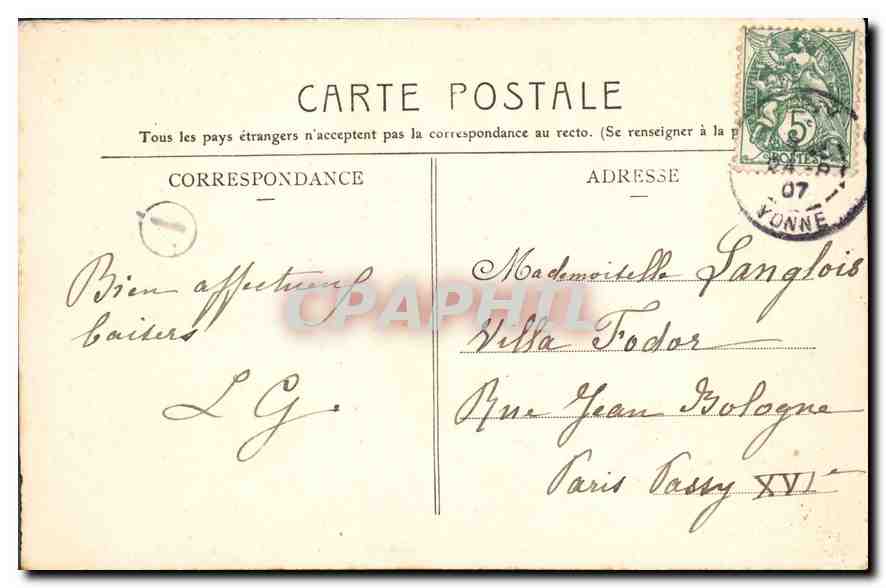 CARTE POSTALE
Tous les pays étrangers n'acceptent pas la correspondance au recto. (Se renseigner à la p
5c
POSTES
07
YONNE
CORRESPONDANCE
ADRESSE
1
Bien affectueux
baisers
L G.
Mademoiselle Langlois
Villa Fodor
Rue Jean Bologne
Paris Passy XVIe
CPAPHIL